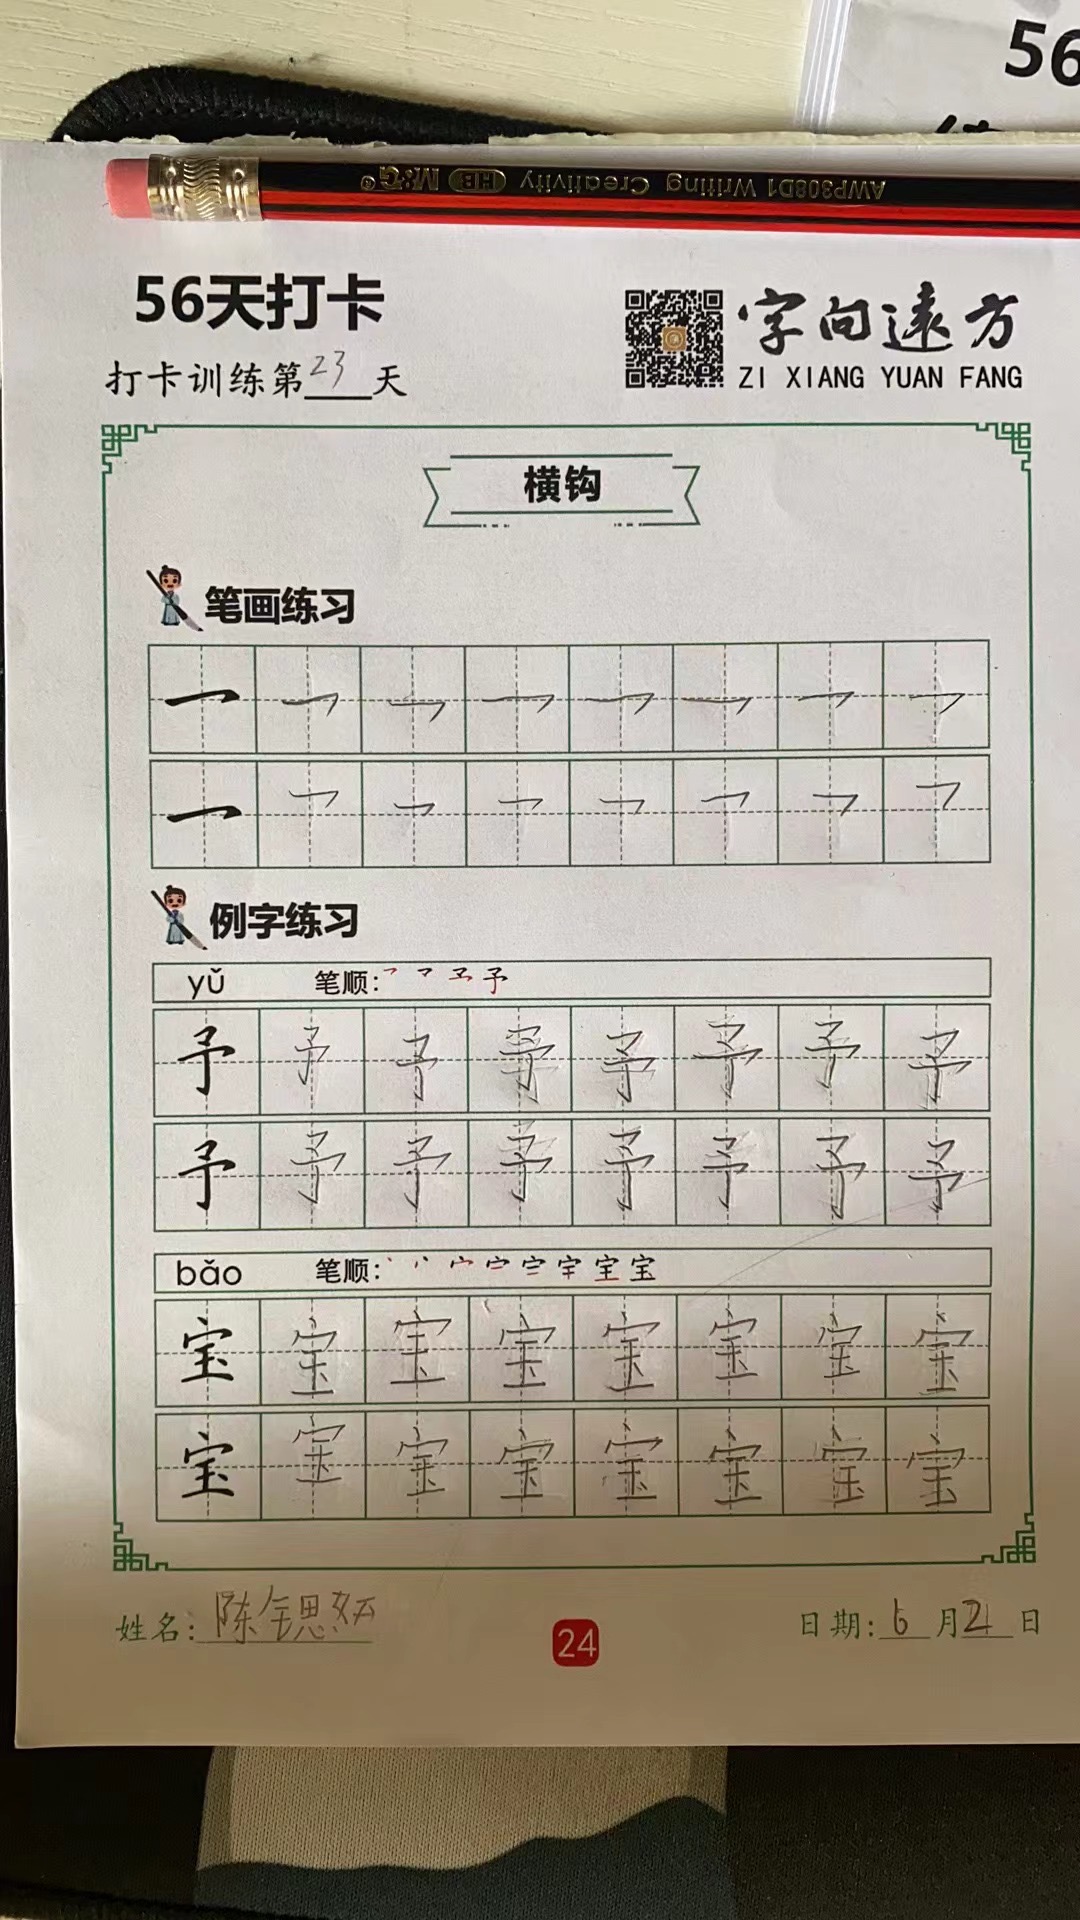 56
M&G HB Writing Creativity AWP308D1
56天打卡
字向遠方
打卡训练第23天
ZI XIANG YUAN FANG
横钩
笔画练习
㇖ ㇖ ㇖ ㇖ ㇖ ㇖ ㇖ ㇖
㇖ ㇖ ㇖ ㇖ ㇖ ㇖ ㇖ ㇖
例字练习
yǔ 笔顺:
予 予 予 予 予 予 予 予
予 予 予 予 予 予 予 予
bǎo 笔顺:
宝 宝 宝 宝 宝 宝 宝 宝
宝 宝 宝 宝 宝 宝 宝 宝
姓名: 陈 思
24
日期: 6月21日